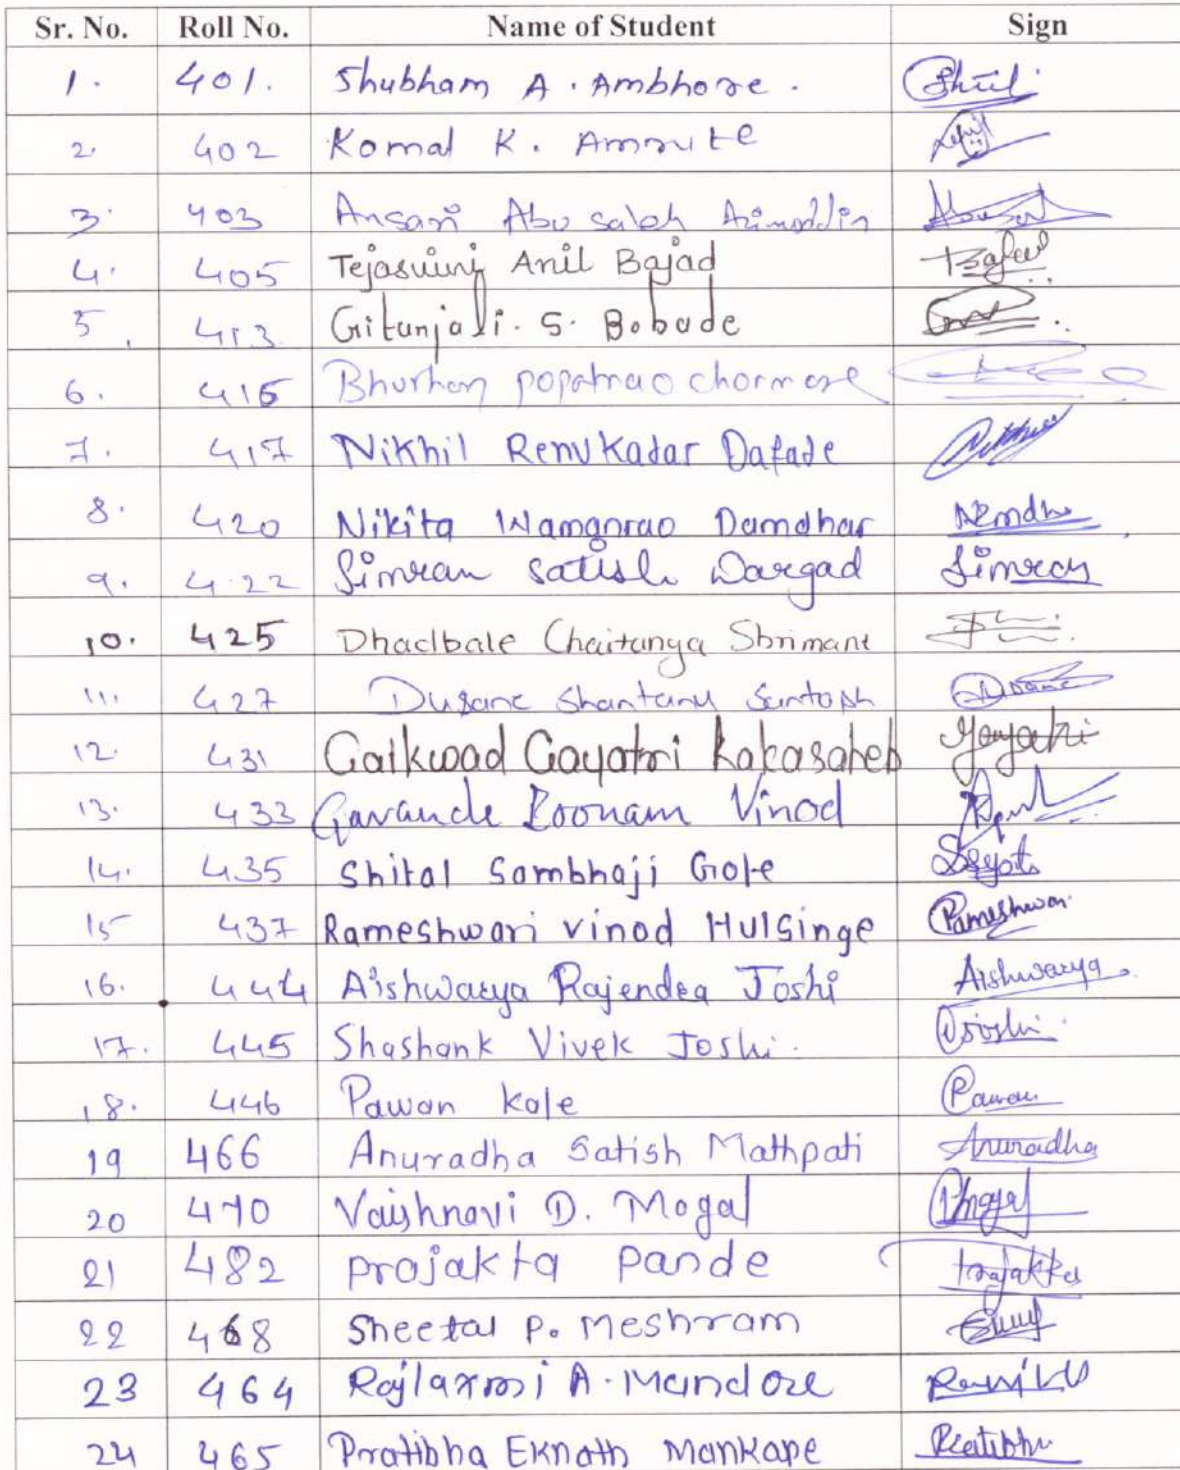 Sr. No. Roll No. Name of Student Sign
1. 401. Shubham A. Ambhore.
2. 402 Komal K. Amrute
3. 403 Ansari Abu saleh Azimoddin
4. 405 Tejaswini Anil Bajad
5. 413 Gitanjali. S. Bobade
6. 416 Bhushan popatrao chormare
7. 417 Nikhil Renukadar Dafade
8. 420 Nikita Wamanrao Damdhar
9. 422 Simran satish Dargad Simran
10. 425 Dhadbale Chaitanya Shrimant
11. 427 Dusane Shantanu Santosh Dusane
12. 431 Gaikwad Gayatri Kakasaheb Gayatri
13. 433 Gavande Poonam Vinod
14. 435 Shital Sambhaji Gote
15 437 Rameshwari vinod Hulsinge Rameshwari
16. 444 Aishwarya Rajendra Joshi Aishwarya
17. 445 Shashank Vivek Joshi.
18. 446 Pawan Kale Pawan
19 466 Anuradha Satish Mathpati Anuradha
20 470 Vaishnavi D. Mogal
21 482 prajakta Pande Prajakta
22 468 Sheetal P. Meshram
23 464 Rajlaxmi A. Mandore
24 465 Pratibha Eknath Mankape Pratibha